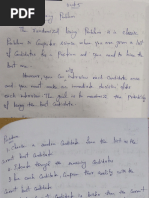 Unit-5
Hiring Problem
The Randomized hiring Problem is a classic
Problem in Computer science where you are given a list
of Candidates for a Position and you need to hire the
best one.
However, you can interview each Candidate once
and you must make an immediate decision after
each interview. The goal is to maximize the probability
of hiring the best Candidate.
Problem
Candidate from the list as the
current best Candidate.
2. Iterate through the remaining Candidates
3. For each Candidate, Compare their quality with the
Current best Candidate.
Candidate is better than the